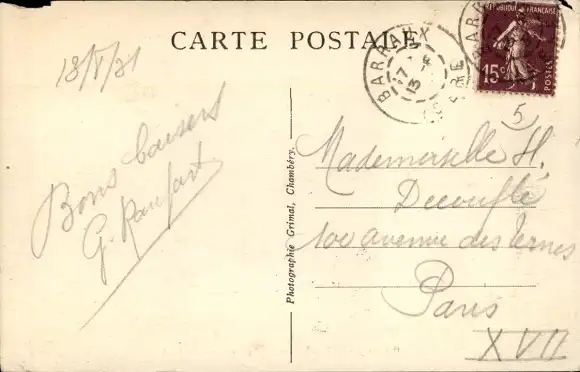 CARTE POSTALE
BARRAUX
17
13 - 5
ISERE
RÉPUBLIQUE FRANÇAISE
15c
POSTES
18/5/31
5
Bons baisers
G.
Mademoiselle H.
Decouflé
100 avenue des Ternes
Paris
XVII
Photographie Grimal, Chambéry.